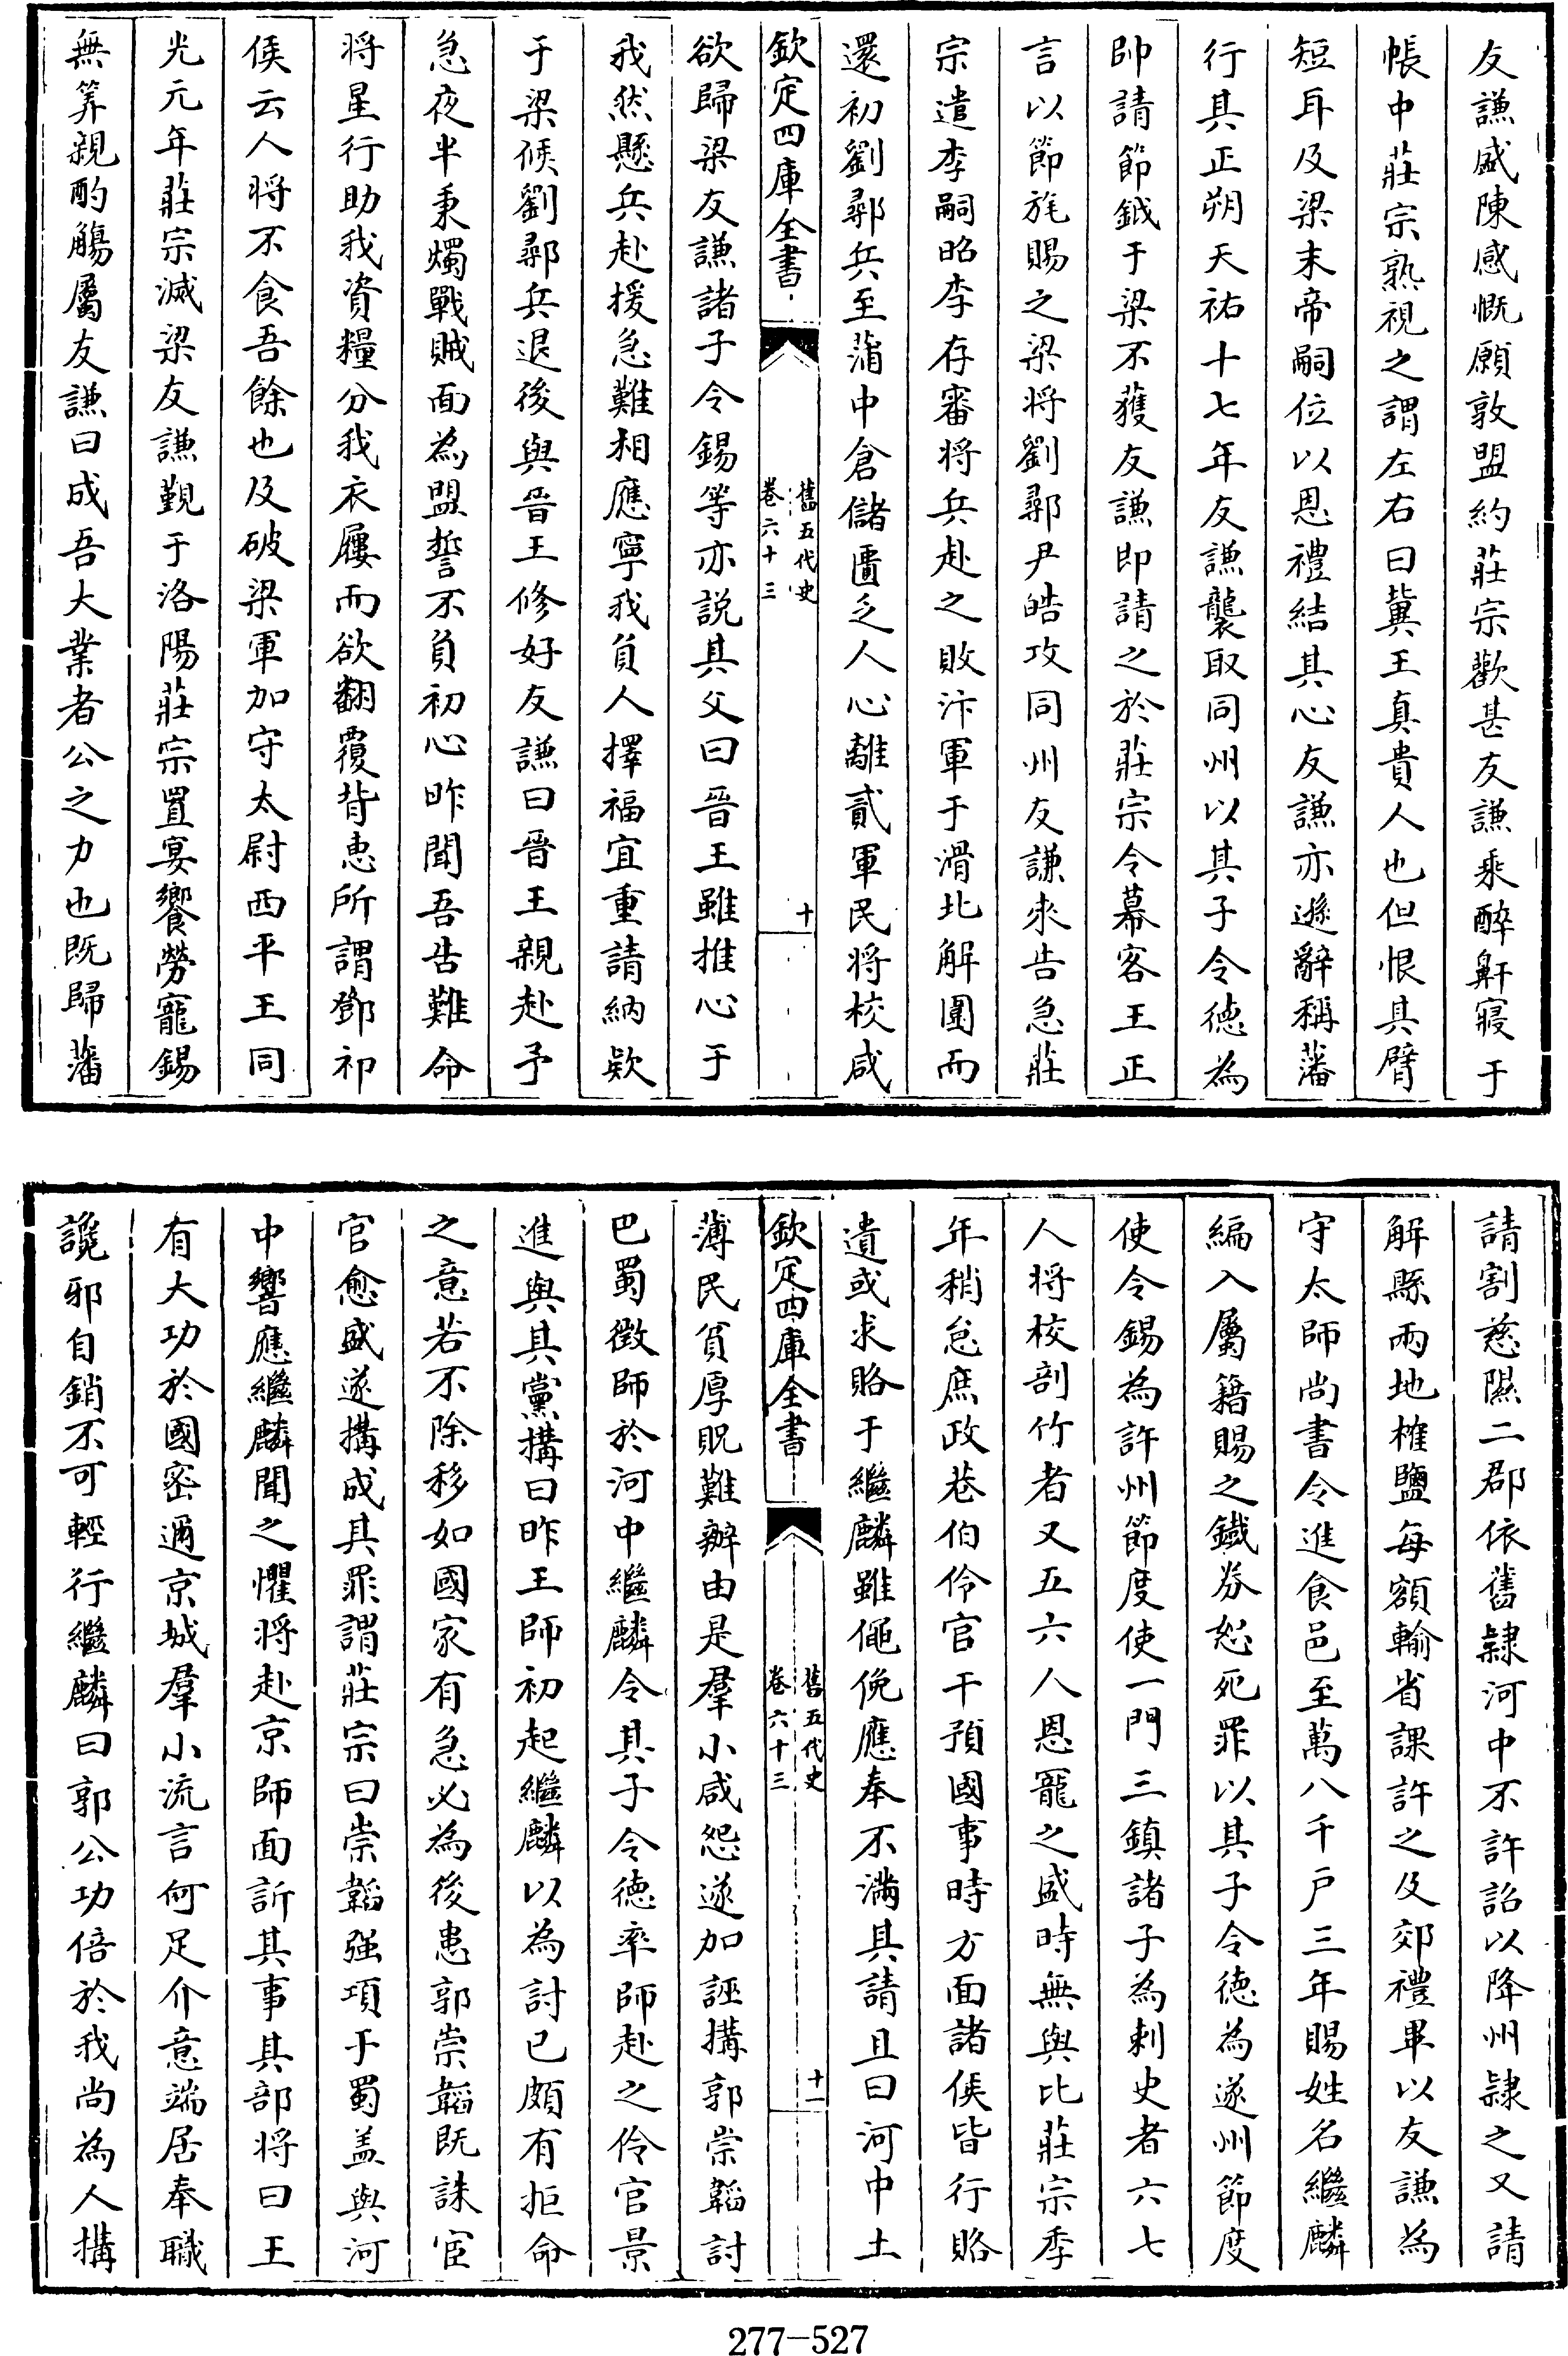 友謙盛陳感慨願敦盟約莊宗歡甚友謙乘醉鼾寢于
帳中莊宗熟視之謂左右曰冀王真貴人也但恨其臂
短耳及梁末帝嗣位以恩禮結其心友謙亦遜辭稱藩
行其正朔天祐十七年友謙襲取同州以其子令徳為
帥請節鉞于梁不獲友謙即請之於莊宗令幕客王正
言以節旄賜之梁将劉鄩尹皓攻同州友謙來告急莊
宗遣李嗣昭李存審将兵赴之敗汴軍于渭北解圍而
還初劉鄩兵至蒲中倉儲匱乏人心離貳軍民将校咸
欽定四庫全書
舊五代史
卷六十三
十
欲歸梁友謙諸子令錫等亦説其父曰晉王雖推心于
我然懸兵赴援急難相應寧我負人擇福宜重請納欵
于梁候劉鄩兵退後與晉王修好友謙曰晉王親赴予
急夜半秉燭戰賊面為盟誓不負初心昨聞吾告難命
将星行助我資糧分我衣屨而欲翻覆背恵所謂鄧祁
侯云人将不食吾餘也及破梁軍加守太尉西平王同
光元年莊宗滅梁友謙覲于洛陽莊宗置宴饗勞寵錫
無筭親酌觴屬友謙曰成吾大業者公之力也既歸藩
請割慈隰二郡依舊隸河中不許詔以降州隸之又請
解縣兩地榷鹽每額輸省課許之及郊禮畢以友謙為
守太師尚書令進食邑至萬八千户三年賜姓名繼麟
編入屬籍賜之鐵券恕死罪以其子令徳為遂州節度
使令錫為許州節度使一門三鎮諸子為刺史者六七
人将校剖竹者又五六人恩寵之盛時無與比莊宗季
年稍怠庶政巷伯伶官干預國事時方面諸侯皆行賂
遺或求賂于繼麟雖僶俛應奉不滿其請且曰河中土
欽定四庫全書
舊五代史
卷六十三
十一
薄民貧厚貺難辦由是羣小咸怨遂加誣搆郭崇韜討
巴蜀徵師於河中繼麟令其子令徳率師赴之伶官景
進與其黨搆曰昨王師初起繼麟以為討已頗有拒命
之意若不除移如國家有急必為後患郭崇韜既誅宦
官愈盛遂搆成其罪謂莊宗曰崇韜强項于蜀盖與河
中響應繼麟聞之懼将赴京師面訴其事其部将曰王
有大功於國密邇京城羣小流言何足介意端居奉職
讒邪自銷不可輕行繼麟曰郭公功倍於我尚為人搆
277-527